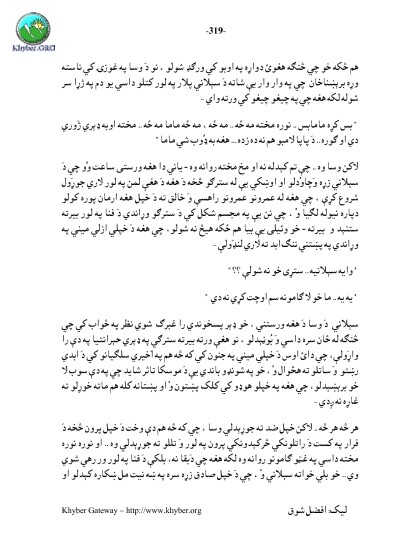 -319-
Khyber.ORG
هم ځکه خو چي څنګه هغوئ دواړه په اوبو کي ورګډ شولو ، نو دَ وسا په غوزۍ کي ناسته
وه برېښناخان چي په وار وار يې شاته دَ سېلاني پلار په لور کتلو داسي يو دم په ژړا سر
شوله لکه هغه چي په چيغو چيغو کي ورته واي -
" بس کړه ماماپس . نوره مخته مه ځه .. مه ځه ، مه ځه ماما مه ځه .. مخته اوبه ډېري ژوري
دي او ګوره .. دَ پاپا لامبو هم نه ده زده ... هغه به ډُوب شي ماما "
لاکن وسا وه .. چي تم کېدله نه او مخ مخته روانه وه - ياني دا هغه ورستی ساعت وُو چي دَ
سېلاني زړه وَچاوُدلو او اوښکي يې له سترګو څخه دَ هغه دَ هغې لمن په لور لاري جوړول
شروع کړې ، چي هغه له عمرونو عمرونو راهسې وَ خالق ته دَ خپل هغه ارمان پوره کولو
دپاره نيولۀ لګيا وُ ، چي نن يې په مجسم شکل کي دَ سترګو وړاندي دَ فنا په لور بېرته
ستنېد و بېرته - خو وئيلی يې بيا هم ځکه هيڅ نه شولو ، چي هغه دَ خپلي ازلي ميني په
وړاندي په پښتنې ننګ ابد ته لاري لنډولې -
" وايه سېلانيه .. ستړی خو نه شولې ؟؟ "
" يه يه .. ما خو لا ګامونه سم اوچت کړي نه دي "
سېلاني دَ وسا دَ هغه ورستني ، خو ډېر پسخوندي را غبرګ شوي نظر په ځواب کي چي
څنګه له ځان سره داسي وَ بُوڼېدلو ، نو هغې ورته بېرته سترګي په ډېري حېرانتيا په دې را
واړولې، چي دائ اوس دَ خپلي ميني په جنون کي که څه هم په اخيري سلګيانو کي دَ ابدي
رښتو وَ ساتلو ته هڅوال وُ ، خو په شونډو باندي يې دَ موسکا تاثر شايد چي په دې سوب لا
خو برېښېدلو، چي هغه په خپلو هوډو کي کلک پښتون وُ او پښتانه کله هم ماته خوړلو ته
غاړه نه ږدي -
هر څه هر څه .. لاکن خپل ضد ته جوړېدلې وسا ، چي که څه هم دې وخت دَ خپل پرون څخه دَ
فرار په کست دَ راتلونکي څرکېدونکي پرون په لور وَ تللو ته جوړېدلې وه .. او نوره نوره
مخته داسي په غټو ګامونو روانه وه لکه هغه چي دَبقا نه، بلکې دَ فنا په لور ور رهي شوې
وي .. خو بلي خواته سېلاني وُ ، چي دَ خپل صادق زړه سره په ښه نيت مل ښکاره کېدلو او
Khyber Gateway – http://www.khyber.org
ليک: افضل شوق